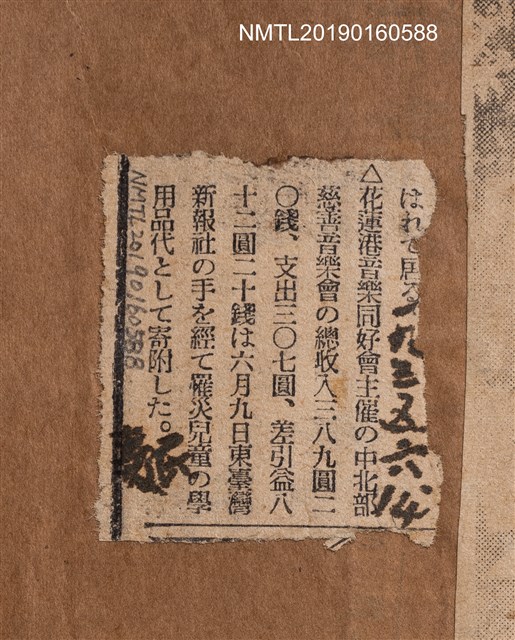 NMTL20190160588
はれて居る
一九三五六/14
△花蓮港音樂同好會主催の中北部
慈善音樂會の總收入三八九圓二
〇錢、支出三〇七圓、差引益八
十二圓二十錢は六月九日東臺灣
新報社の手を經て罹災兒童の學
用品代として寄附した。
NMTL20190160588